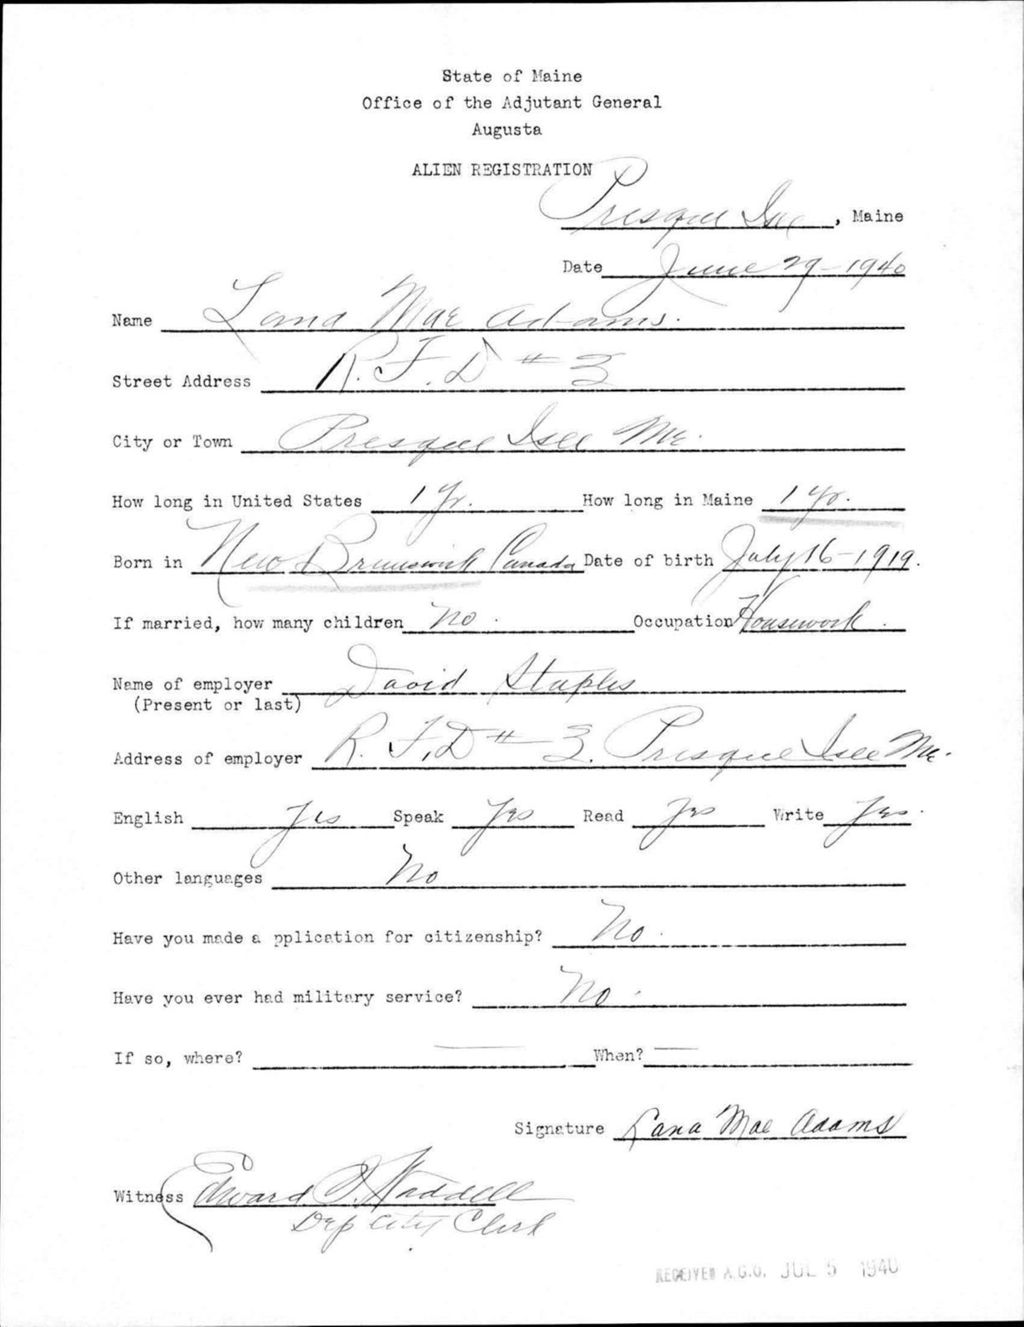 State of Maine
Office of the Adjutant General
Augusta
ALIEN REGISTRATION
Presque Isle, Maine
Date June 29-1940
Name Lana Mae Adams.
Street Address R.F.D # 3
City or Town Presque Isle Me.
How long in United States 1 Yr. How long in Maine 1 Yr.
Born in New Brunswick Canada Date of birth July 16-1919.
If married, how many children No. Occupation Housework.
Name of employer David Staples
(Present or last)
Address of employer R.F.D # 3. Presque Isle Me.
English Yes Speak Yes Read Yes Write Yes.
Other languages No
Have you made a pplication for citizenship? No.
Have you ever had military service? No.
If so, where? — When? —
Signature Lana Mae Adams
Witness Edward Waddell
Dep City Clerk
RECEIVED A.G.O. JUL 5 1940